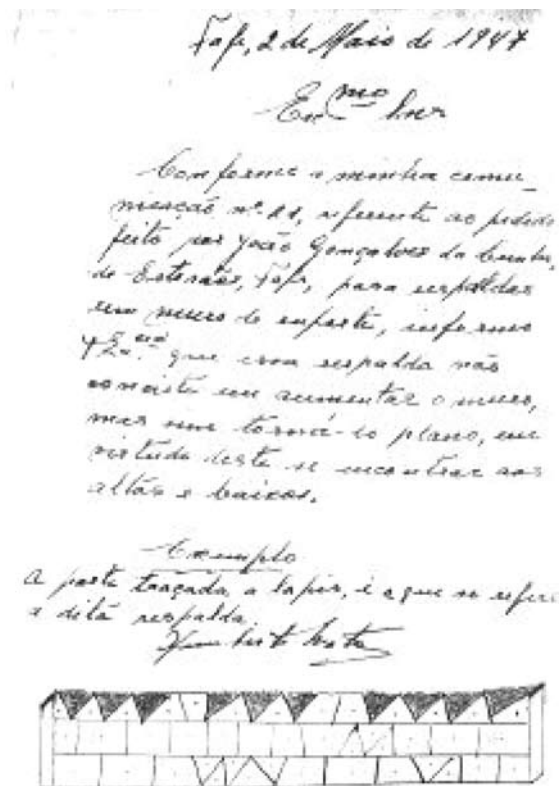 Fafe, 2 de Maio de 1947
Ex.mo Snr
Conforme a minha comu-
nicação nº 11, referente ao pedido
feito por João Gonçalves da Cunha,
de Estorãos, Fafe, para respaldar
um muro de suporte, informo
V. Ex.ª que essa respalda não
consiste em aumentar o muro,
mas sim torná-lo plano, em
virtude deste se encontrar aos
altos e baixos.
Exemplo
A parte traçada a lapis, é a que se refere
a dita respalda